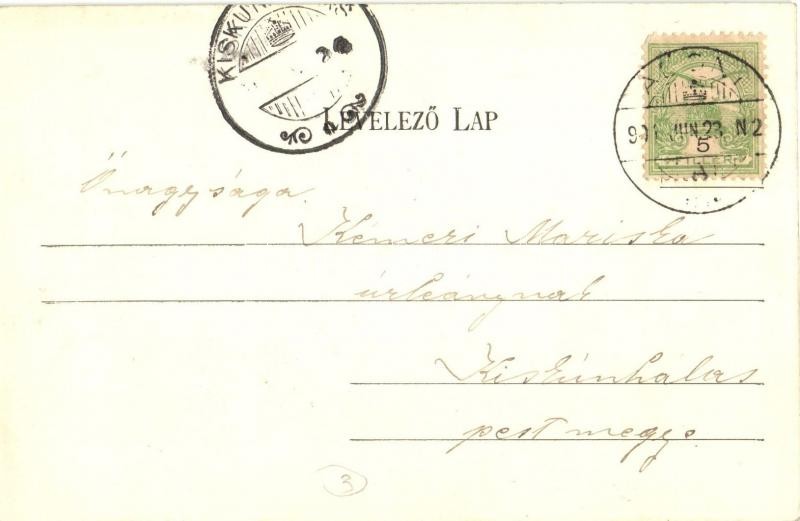 KISKUN
LEVELEZŐ LAP
JUN 23 N2
5
FILLÉR
Őnagysága
Kémeri Mariska
úrleánynak
Kiskúnhalas
pest megye
3